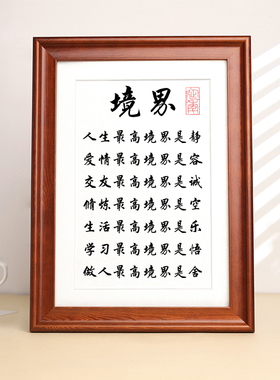 境界
人生最高境界是静
爱情最高境界是容
交友最高境界是诚
修炼最高境界是空
生活最高境界是乐
学习最高境界是悟
做人最高境界是舍